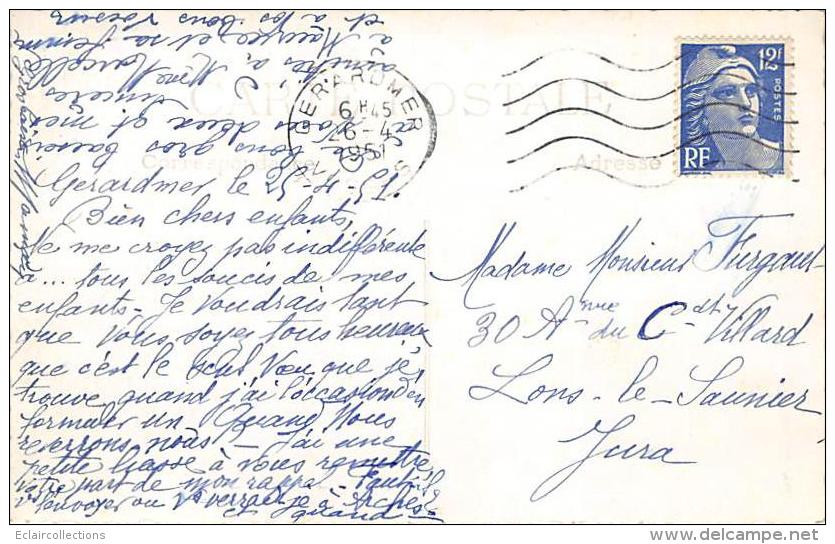 CARTE POSTALE
Correspondance
Adresse
GERARDMER
6 H 45
16-4
12F
POSTES
RF
Gerardmer le
Bien chers enfants,
Ne me croyez pas indifférente
à... tous les soucis de mes
enfants - Je voudrais tant
que vous soyez tous heureux
que c'est le seul Vœu que je
trouve quand j'ai l'occasion d'en
formuler un. Quand Nous
reverrons nous ? - J'ai une
petite liasse à vous remettre,
votre part de mon rappel - Faut-il
l'envoyer ou Vs verrai-je à Arches
quand
de bons gros baisers
à vous deux et mes
sincères
amitiés à Mme Marcelle
à Maurice et sa femme
et à vos bons
Maman
Madame Monsieur
30 Anue du Cdt Villard
Lons-le-Saunier
Jura
Eclaircollections
www.delcampe.net